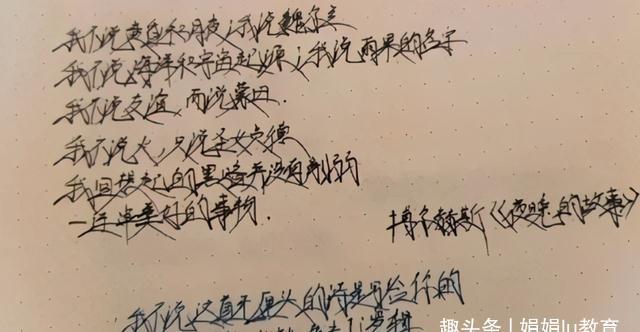 我不说黄昏和月夜；我说魏尔兰
我不说海洋和宇宙起源；我说雨果的名字
我不说友谊，而说蒙田。
我不说火，只说圣女贞德
我回想起的黑暗并没有削弱
一连串美好的事物。
博尔赫斯《夜晚的故事》
我不说这首不厚头的诗是写给你的
趣头条 | 娟娟lu教育